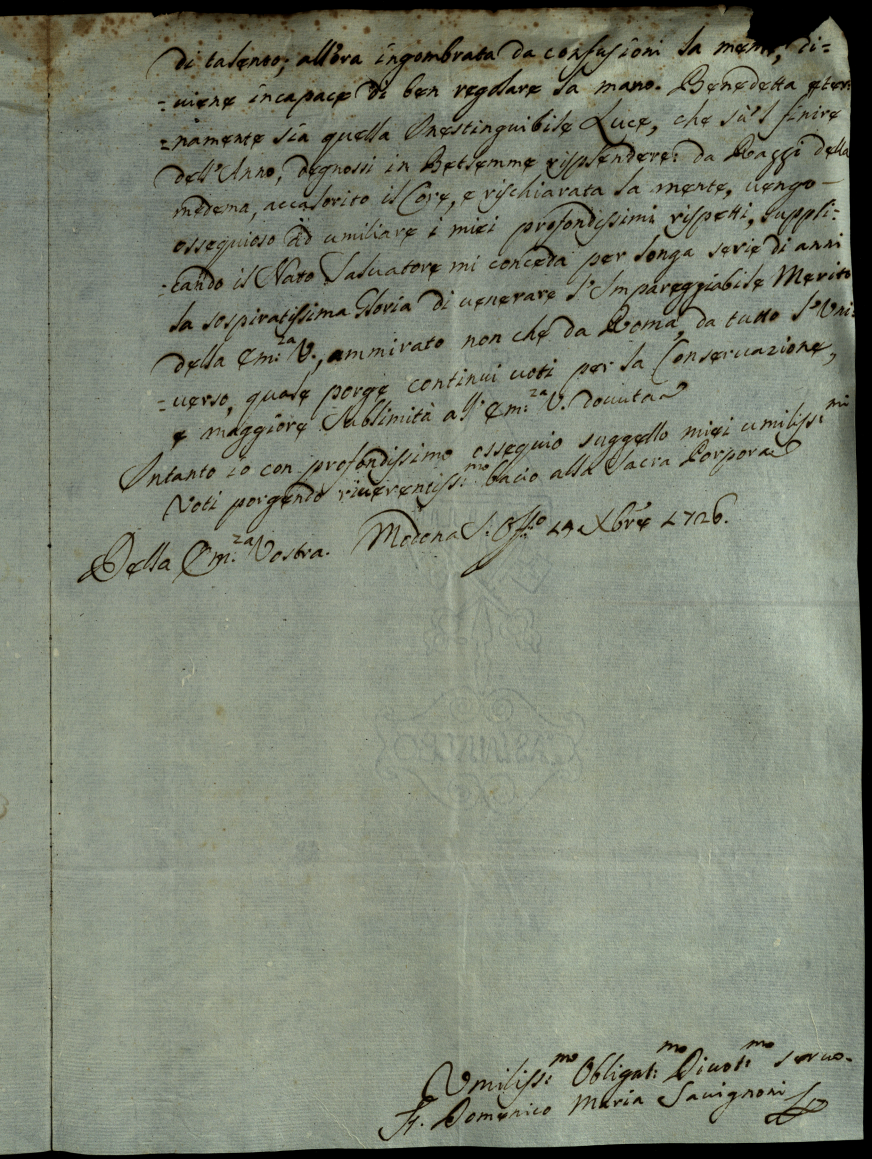 di talento; all'ora ingombrata da confusioni la mente, di=
=uiene incapace di ben regolare la mano. Benedetta eter=
=namente sia quella Inestinguibile Luce, che sù'l finire
dell'Anno, degnossi in Betlemme risplendere: da Raggi della
medema, accalorito il Core, e rischiarata la mente, uengo-
ossequioso ad umiliare i miei profondissimi rispetti, suppli=
=cando il Nato Saluatore mi conceda per longa serie di anni
la sospiratissima Gloria di uenerare l'Impareggiabile Merito
della Em:za V., ammirato non che da Roma, da tutto l'Uni=
=uerso, quale porge continui uoti per la Conseruazione,
e maggiore Sublimità all' Em:za V. douuta
Intanto io con profondissimo ossequio suggello miei umilissimi
Voti porgendo riuerentissimo bacio alla Sacra Porpora
Della Em:za Vostra. Modena S. Offo Xbre 1726.
Umilissi:mo Obligat:mo Diuot:mo seruo.
Fr. Domenico Maria Sauignoni